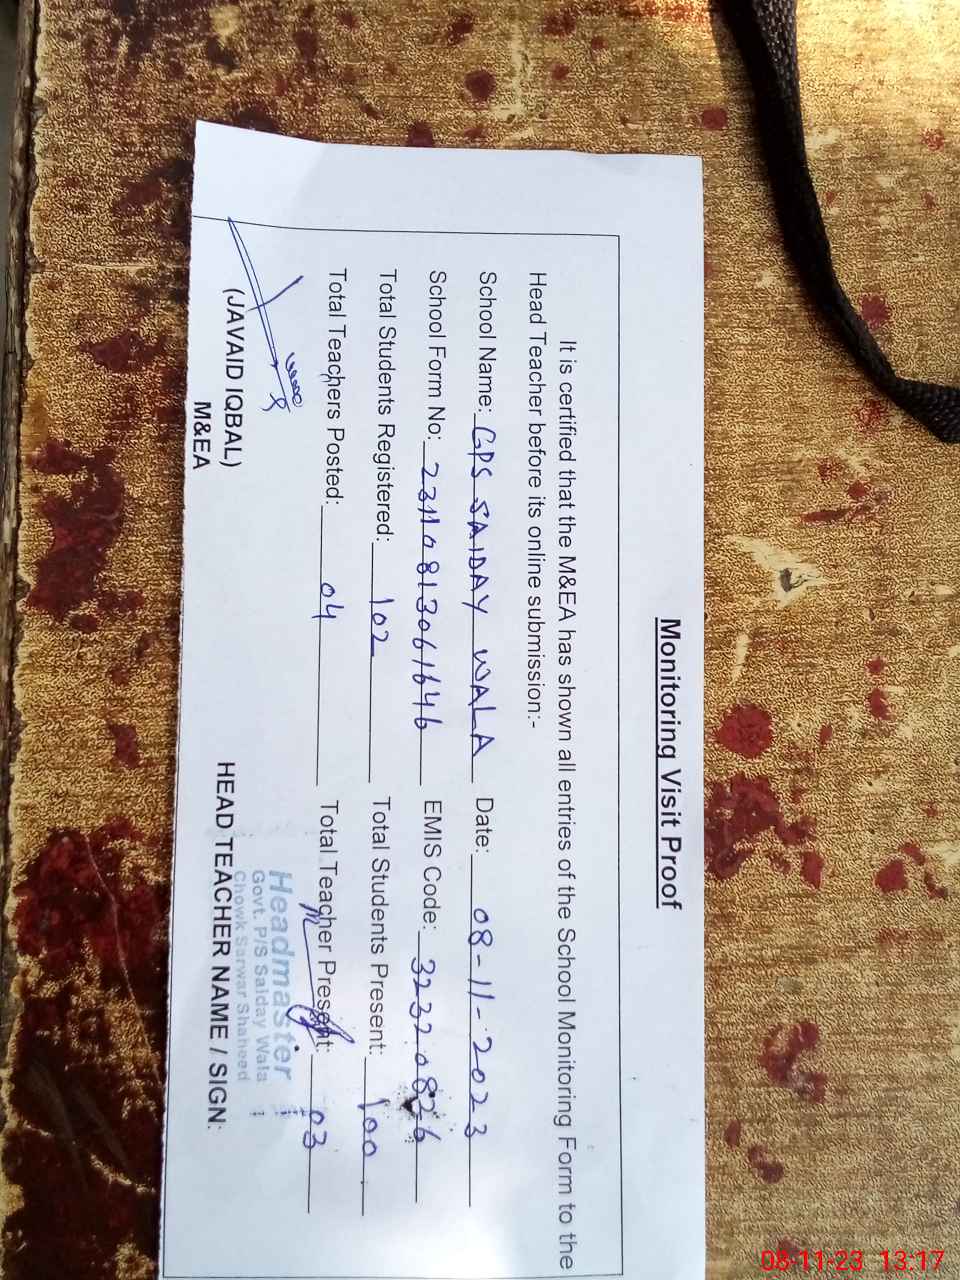 Monitoring Visit Proof
It is certified that the M&EA has shown all entries of the School Monitoring Form to the
Head Teacher before its online submission:-
School Name: GPS SAIDAY WALA Date: 08-11-2023
School Form No: 23110813061646 EMIS Code: 32320826
Total Students Registered: 102 Total Students Present: 100
Total Teachers Posted: 04 Total Teacher Present: 03
(JAVAID IQBAL)
M&EA
Headmaster
Govt. P/S Saiday Wala
Chowk Sarwar Shaheed
HEAD TEACHER NAME / SIGN:
08-11-23 13:17